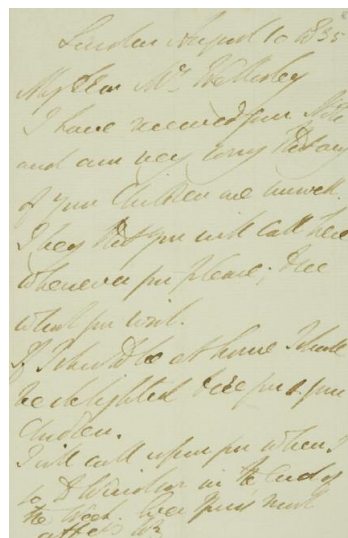 London August 10 1835
My Dear Mrs Wellesley
I have received your Note
and am very sorry that any
of your Children are unwell.
I beg that you will call here
whenever you please; & see
what you will.
If I should be at home I shall
be delighted to see you & your
Children.
I will call upon you when I
go to Windsor in the End of
the Week. Ever Yours most
affly W